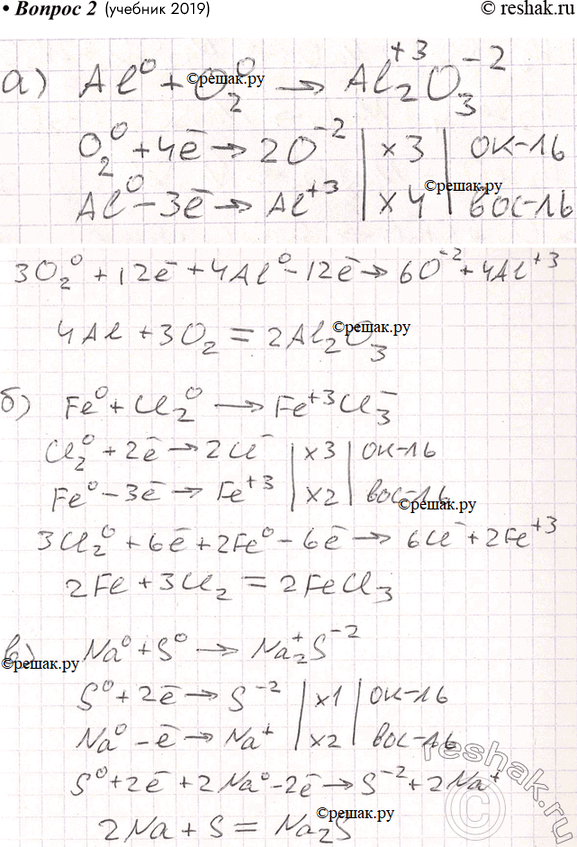 • Вопрос 2 (учебник 2019) © reshak.ru
а) Al⁰ + O₂⁰ → Al₂⁺³O₃⁻²
©решак.ру
O₂⁰ + 4ē → 2O⁻² | ×3 | ок-ль
Al⁰ - 3ē → Al⁺³ | ×4 | вос-ль
©решак.ру
3O₂⁰ + 12ē + 4Al⁰ - 12ē → 6O⁻² + 4Al⁺³
4Al + 3O₂ = 2Al₂O₃
©решак.ру
б) Fe⁰ + Cl₂⁰ → Fe⁺³Cl₃⁻
Cl₂⁰ + 2ē → 2Cl⁻ | ×3 | ок-ль
Fe⁰ - 3ē → Fe⁺³ | ×2 | вос-ль
©решак.ру
3Cl₂⁰ + 6ē + 2Fe⁰ - 6ē → 6Cl⁻ + 2Fe⁺³
2Fe + 3Cl₂ = 2FeCl₃
в) Na⁰ + S⁰ → Na₂⁺S⁻²
©решак.ру
S⁰ + 2ē → S⁻² | ×1 | ок-ль
Na⁰ - ē → Na⁺ | ×2 | вос-ль
S⁰ + 2ē + 2Na⁰ - 2ē → S⁻² + 2Na⁺
2Na + S = Na₂S
©решак.ру
reshak.ru
©